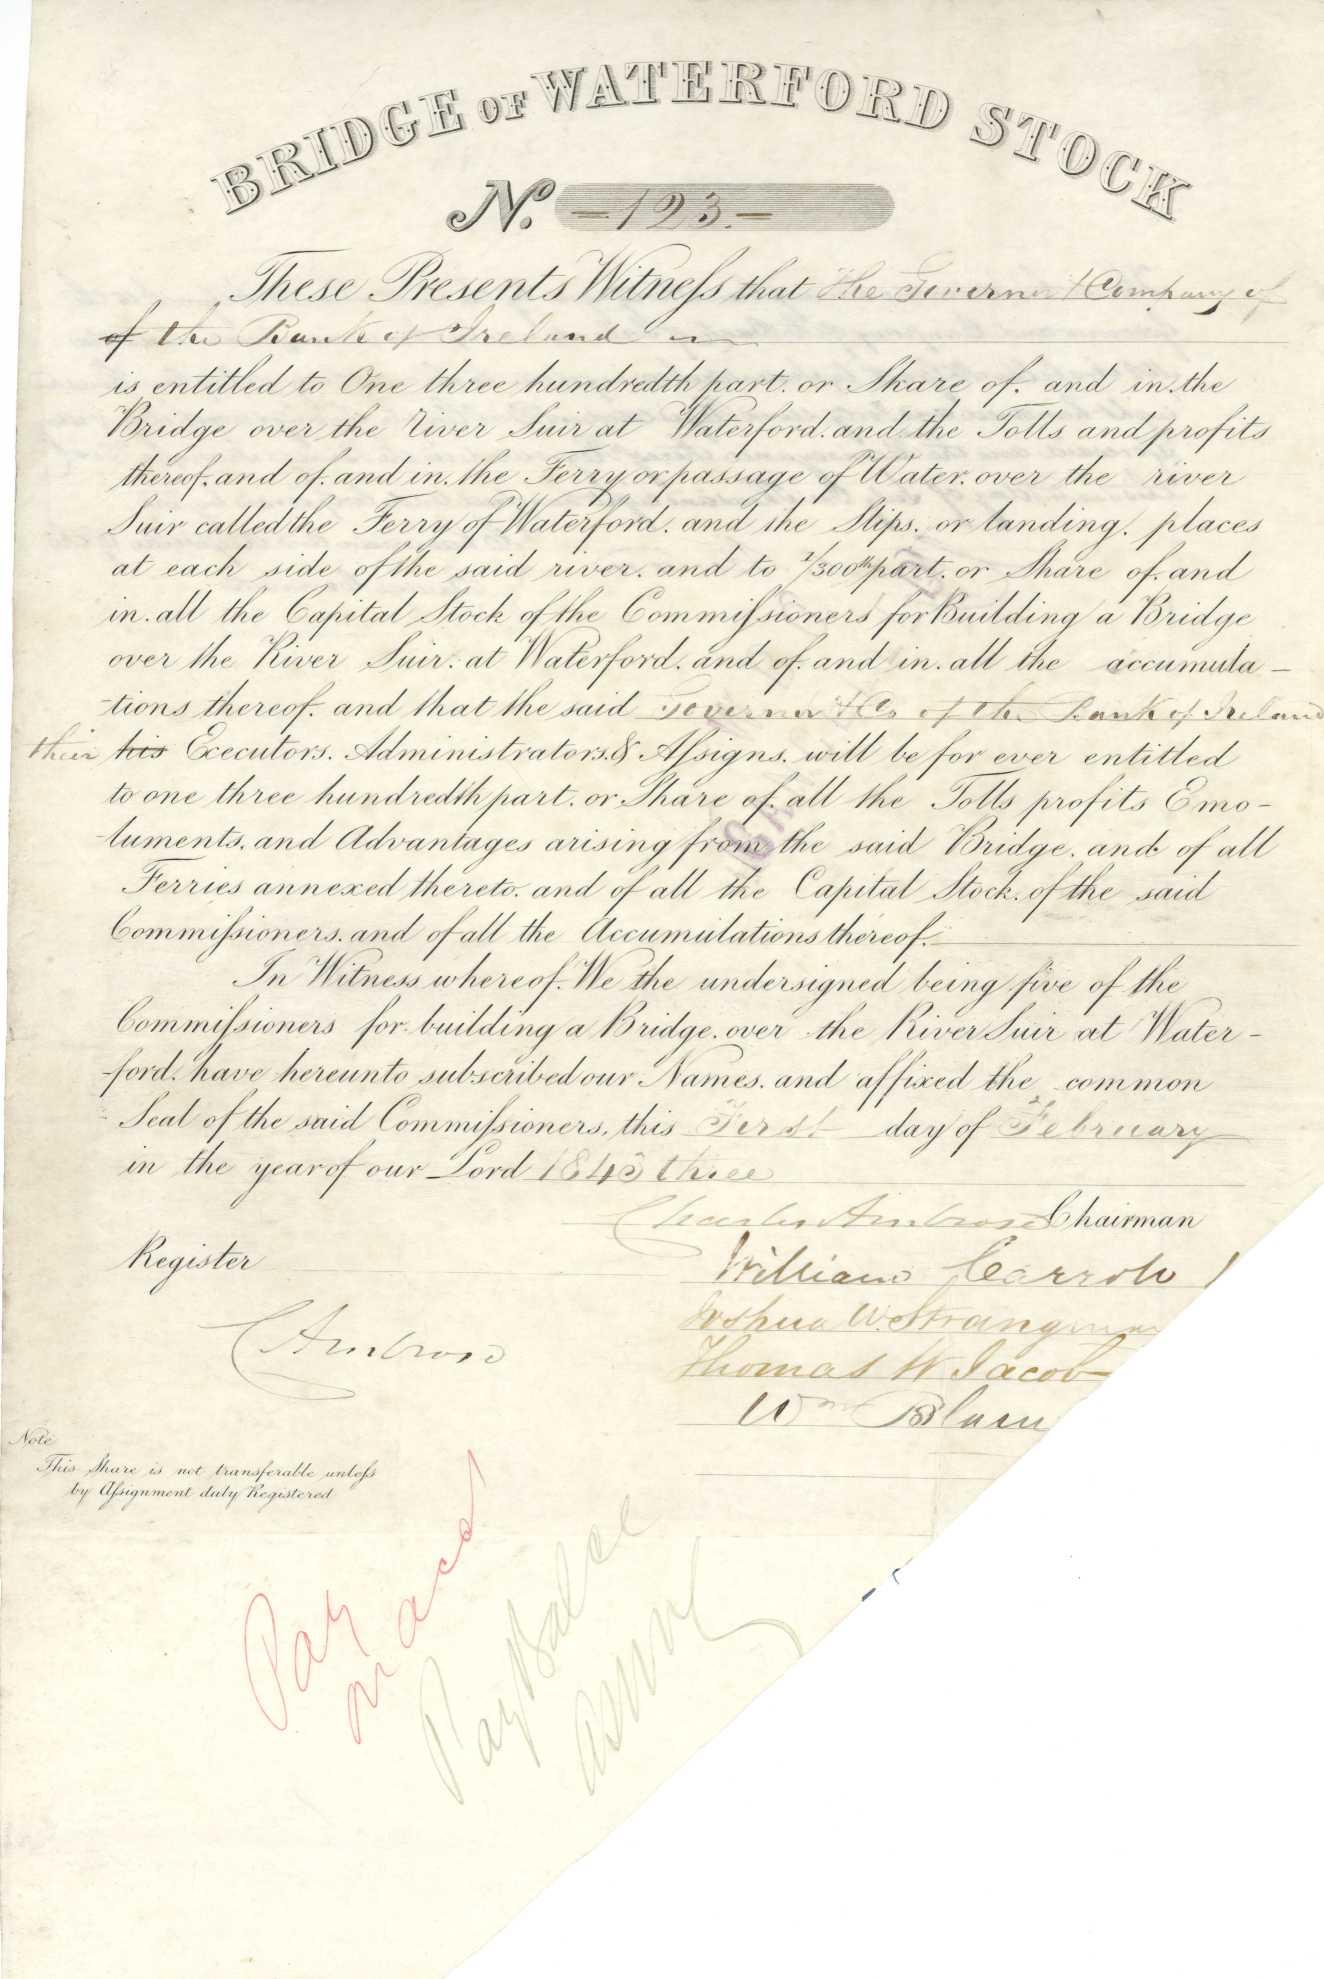 BRIDGE OF WATERFORD STOCK
No. - 123. -
These Presents Witness that The Governor & Company of
of the Bank of Ireland
is entitled to One three hundredth part. or Share of. and in. the
Bridge over the River Suir at Waterford. and the Tolls and profits
thereof. and of. and in. the Ferry or passage of Water. over the river
Suir called the Ferry of Waterford. and the Slips. or landing. places
at each side of the said river. and to 1/300th part. or Share of. and
in. all the Capital Stock of the Commissioners for Building a Bridge
over the River Suir. at Waterford. and of. and in. all the accumula-
-tions thereof. and that the said Governor & Co of the Bank of Ireland
their his Executors. Administrators. & Assigns. will be for ever entitled
to one three hundredth part. or Share of. all the Tolls profits Emo-
-luments. and Advantages arising from the said Bridge. and of all
Ferries annexed thereto. and of all the Capital Stock. of the said
Commissioners. and of all the Accumulations thereof.
In Witness whereof. We the undersigned being five of the
Commissioners for building a Bridge. over the River Suir at Water-
-ford. have hereunto subscribed our Names. and affixed the common
Seal of the said Commissioners, this First day of February
in the year of our Lord 1843 three
Charles Ambrose Chairman
Register
William Carroll
Joshua W. Strangman
C Ambrose
Thomas W Jacob
Wm Blain
Note
This Share is not transferable unless
by Assignment duly Registered
Pay
Pay Balce